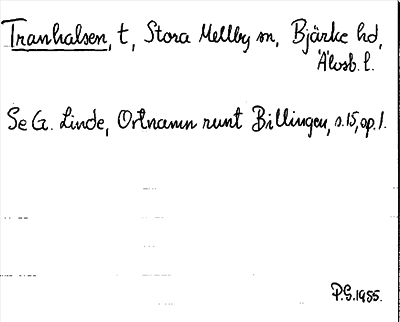 Tranhalsen, t, Stora Mellby sn, Bjärke hd,
Älvsb. l.
Se G. Linde, Ortnamn runt Billingen, s. 15, op. 1.
P.S. 1955.